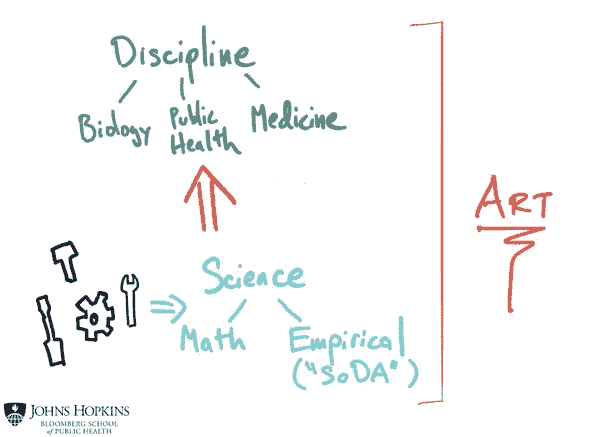 Discipline
Biology
Public
Health
Medicine
ART
Science
Math
Empirical
("SoDA")
JOHNS HOPKINS
BLOOMBERG SCHOOL
of PUBLIC HEALTH